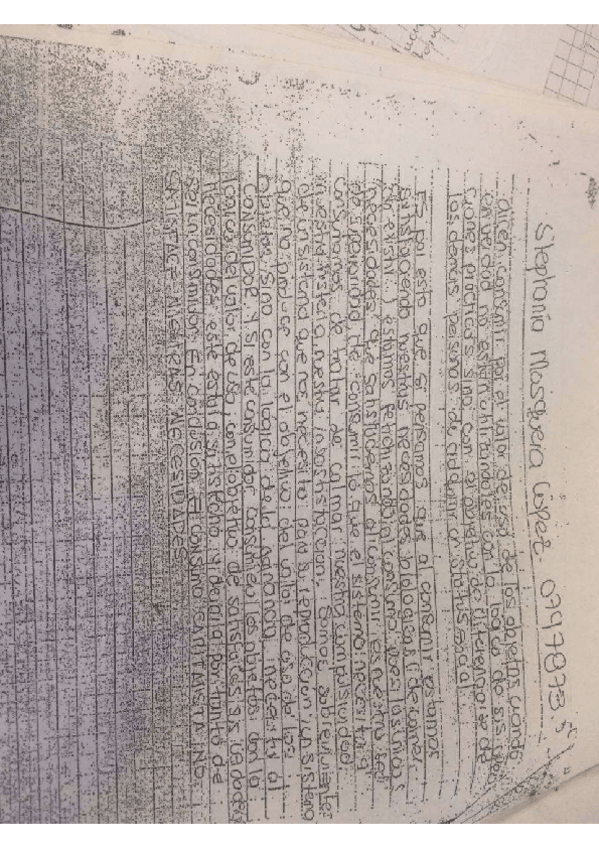 Stephania Mosquera López 0797873.
dicen consumir por el valor de uso de los objetos, cuando
en verdad no están utilizándolos con la lógica de sus
funciones prácticas sino con el objetivo de diferenciarse de
las demás personas, de adquirir status social.
Es por esto que si pensamos que al consumir estamos
satisfaciendo nuestras necesidades biológicas (de comer,
de vestir) estamos fetichizando al consumo, pues las únicas
necesidades que satisfacemos al consumir es nuestra
necesidad de consumir lo que el sistema necesita
consumamos, de tratar de calmar nuestra compulsividad,
nuestra histeria, nuestra insatisfacción. Somos sobrevivientes
de un sistema que nos necesita para su reproducción, un sistema
que no produce con el objetivo del valor de uso de los
objetos, sino con la lógica de la ganancia, necesita al
CONSUMIDOR y si este consumidor consumiera los objetos con la
lógica de valor de uso, con el objetivo de satisfacer sus verdaderas
necesidades, este estaría satisfecho y dejaría por tanto de
ser un consumidor. En conclusión, El CONSUMO CAPITALISTA NO
SATISFACE NUESTRAS NECESIDADES.